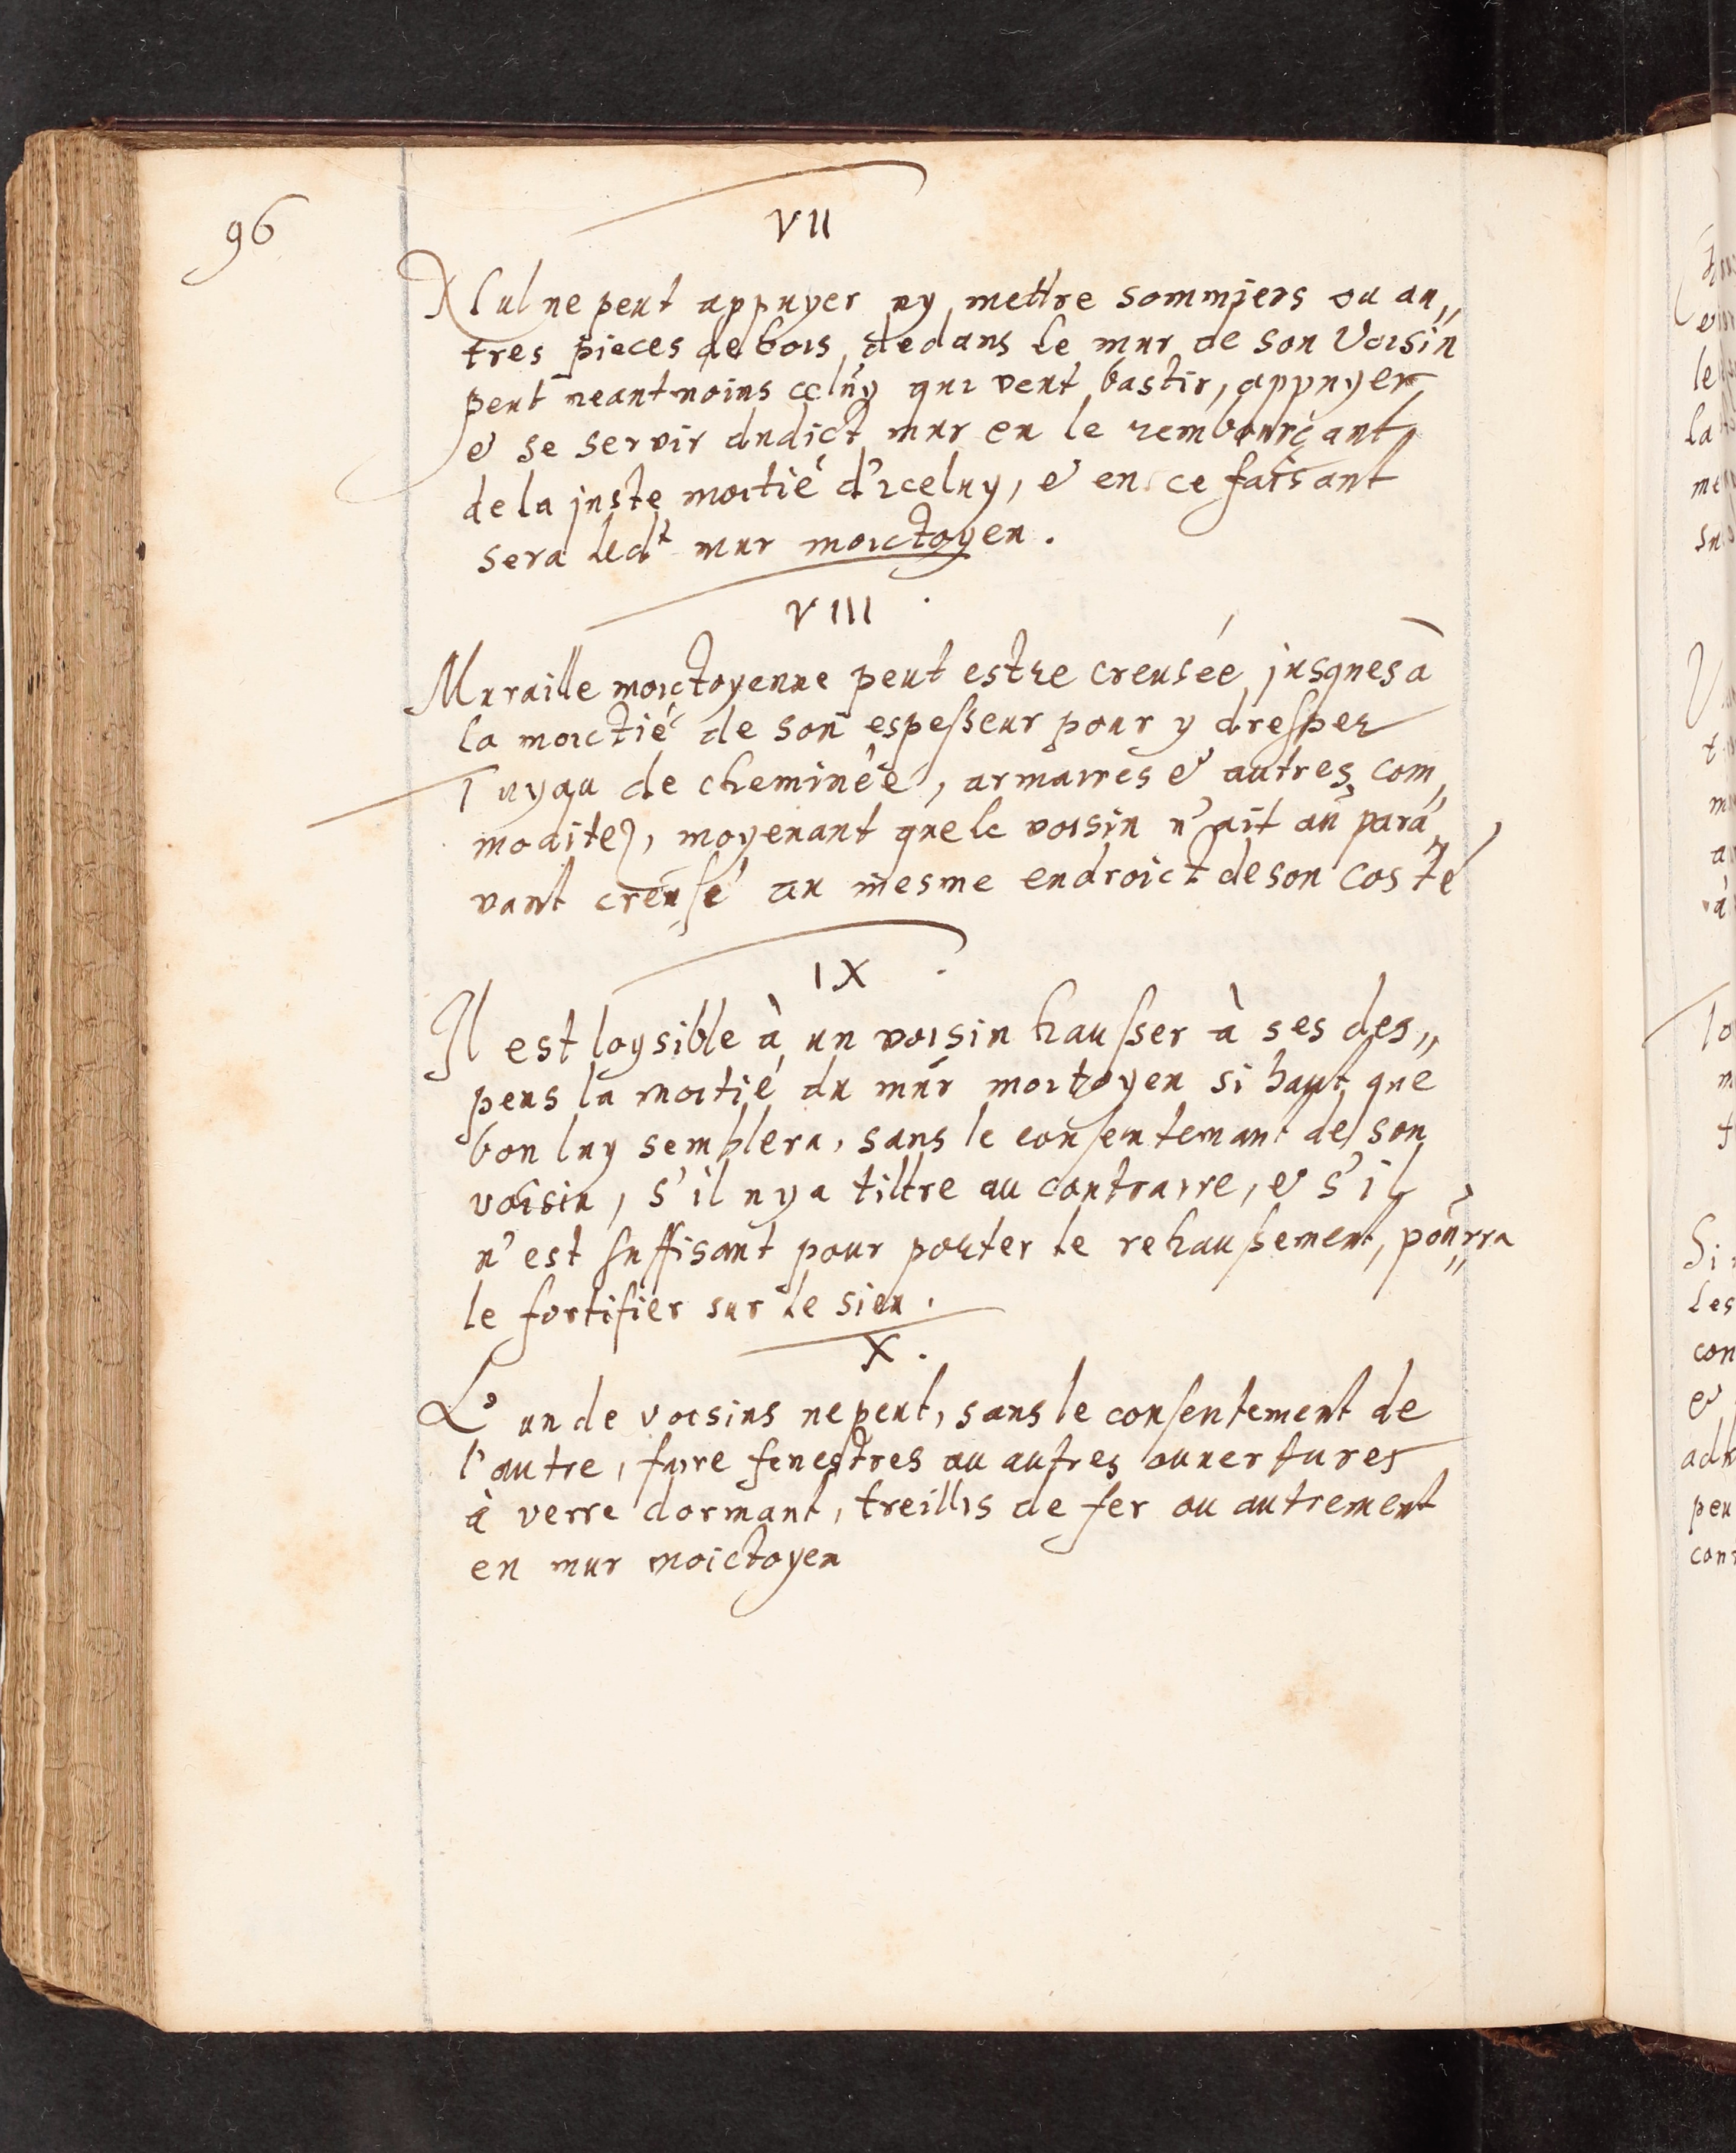 96
VII
Nul ne peut appuyer ny mettre sommiers ou au„
tres pieces de bois dedans le mur de son Voisin
peut neantmoins celuy qui veut bastir, appuyer
& se servir dudict mur en le rembourçant
de la juste moitié d'iceluy, & en ce faisant
sera ledt mur moictoyen.
VIII
Muraille moictoyenne peut estre creusée jusques à
la moictié de son espesseur pour y dresser
Tuyau de cheminée, armaires & autres com„
moditez, moyenant que le voisin n'ait au para„
vant creusé au mesme endroict de son costé
IX
Il est loysible à un voisin hausser à ses des„
pens la moitié du mur moitoyen si haut que
bon luy semblera, sans le consentemant de son
voisin, s'il n y a tiltre au contraire, & s'il
n'est suffisant pour porter le rehaussement, pourra„
le fortifier sur le sien.
X.
L'un de voisins ne peut, sans le consentement de
l'autre, faire fenestres ou autres ouuertures
à verre dormant, treillis de fer ou autrement
en mur moictoyen
le
la
les
con
&
peu